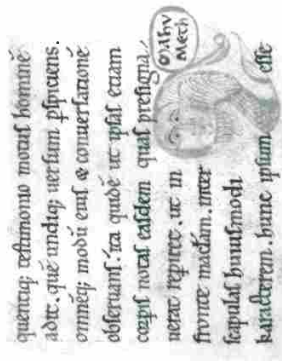 quentiq; testimonio motus hominē
adiit. quē undiq; uersum pspiciens.
omneq; modū eius & conuersationē
obseruans. ita quidē ut ipsas etiam
corpis notas easdem quas presigna
uerat repiret. ut in
fronte madam. inter
scapulas huiusmodi
karacterem. hunc ipsum esse